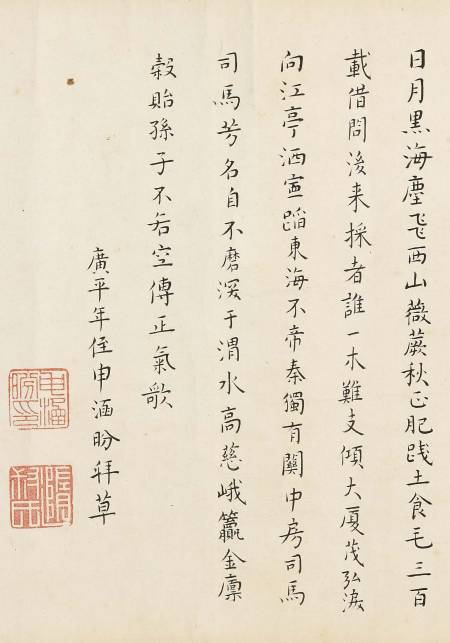 日月黑海塵飛西山薇蕨秋正肥踐土食毛三百
載借問後来採者誰一木難支傾大厦茂弘淚
向江亭洒寍蹈東海不帝秦獨有關中房司馬
司馬芳名自不磨深于渭水高慈峨籯金廪
榖貽孫子不若空傳正氣歌
廣平年侄申涵盼拜草
申涵盼印